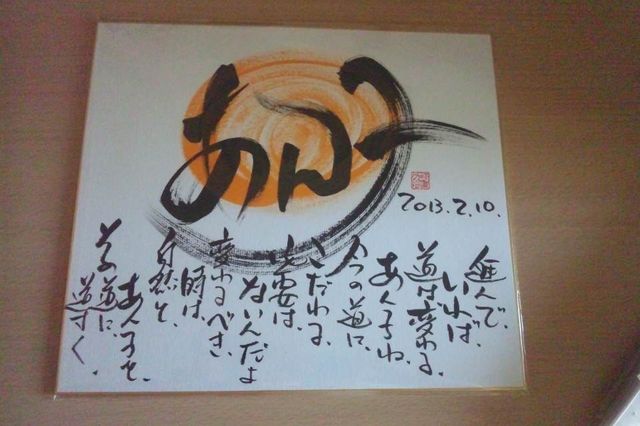 あん子
2013.2.10.
進んで、
いれば、
道は変わる、
あん子ね、
今の道に、
こだわる、
必要は、
ないんだよ
変わるべき、
時は、
自然と、
あん子を、
その道に、
導く、